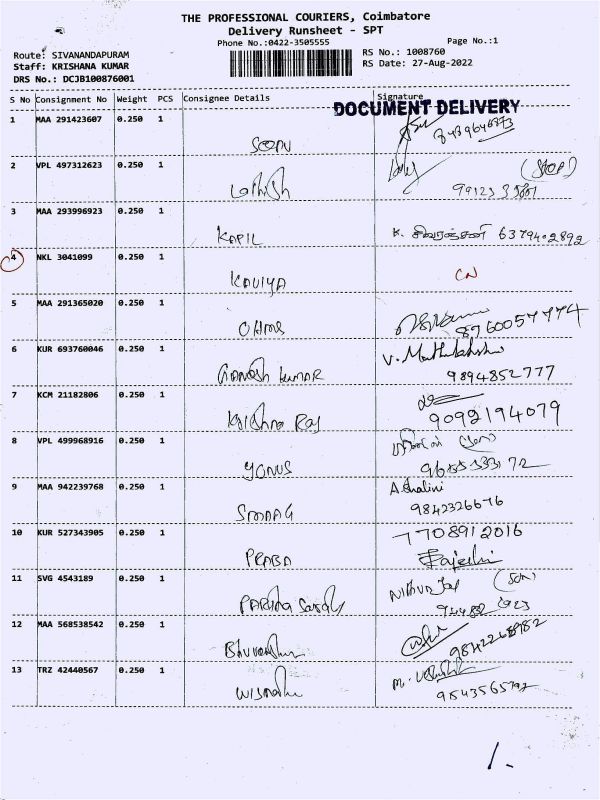 THE PROFESSIONAL COURIERS, Coimbatore
Delivery Runsheet - SPT
Phone No.:0422-3505555
Page No.:1
Route: SIVANANDAPURAM
RS No.: 1008760
Staff: KRISHANA KUMAR
RS Date: 27-Aug-2022
DRS No.: DCJB100876001
S No Consignment No Weight PCS Consignee Details Signature
DOCUMENT DELIVERY
1 MAA 291423607 0.250 1
8439646873
2 VPL 497312623 0.250 1
3 MAA 293996923 0.250 1
KAPIL K. சிவரஞ்சனி 6379402892
4 NKL 3041099 0.250 1
KAVIYA CN
5 MAA 291365020 0.250 1
8760057774
6 KUR 693760046 0.250 1
GANESH KUMAR 9894852777
7 KCM 21182806 0.250 1
Krishna Raj 9092194079
8 VPL 499968916 0.250 1
YONUS
9 MAA 942239768 0.250 1
A. Shalini
9842326676
10 KUR 527343905 0.250 1
7708912016
PRABA Rajeshi
11 SVG 4543189 0.250 1
(Son)
12 MAA 568538542 0.250 1
13 TRZ 42440567 0.250 1
1.